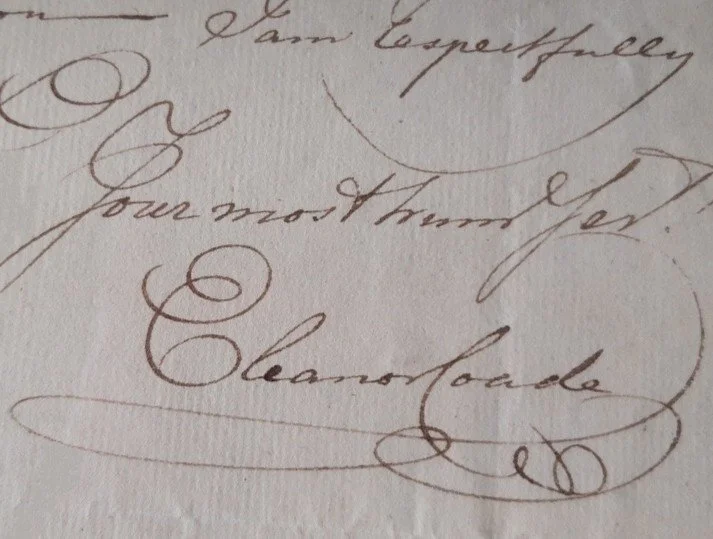 I am Respectfully
Your most hum Ser.t
Eleanor Coade